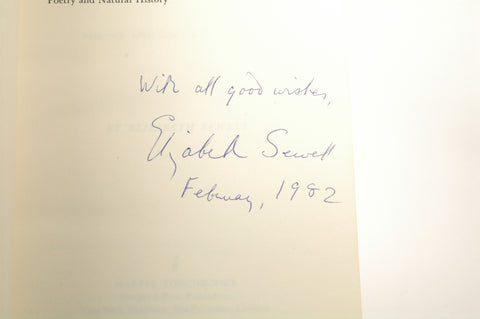 Poetry and Natural History
With all good wishes,
Elizabeth Sewell
February, 1982